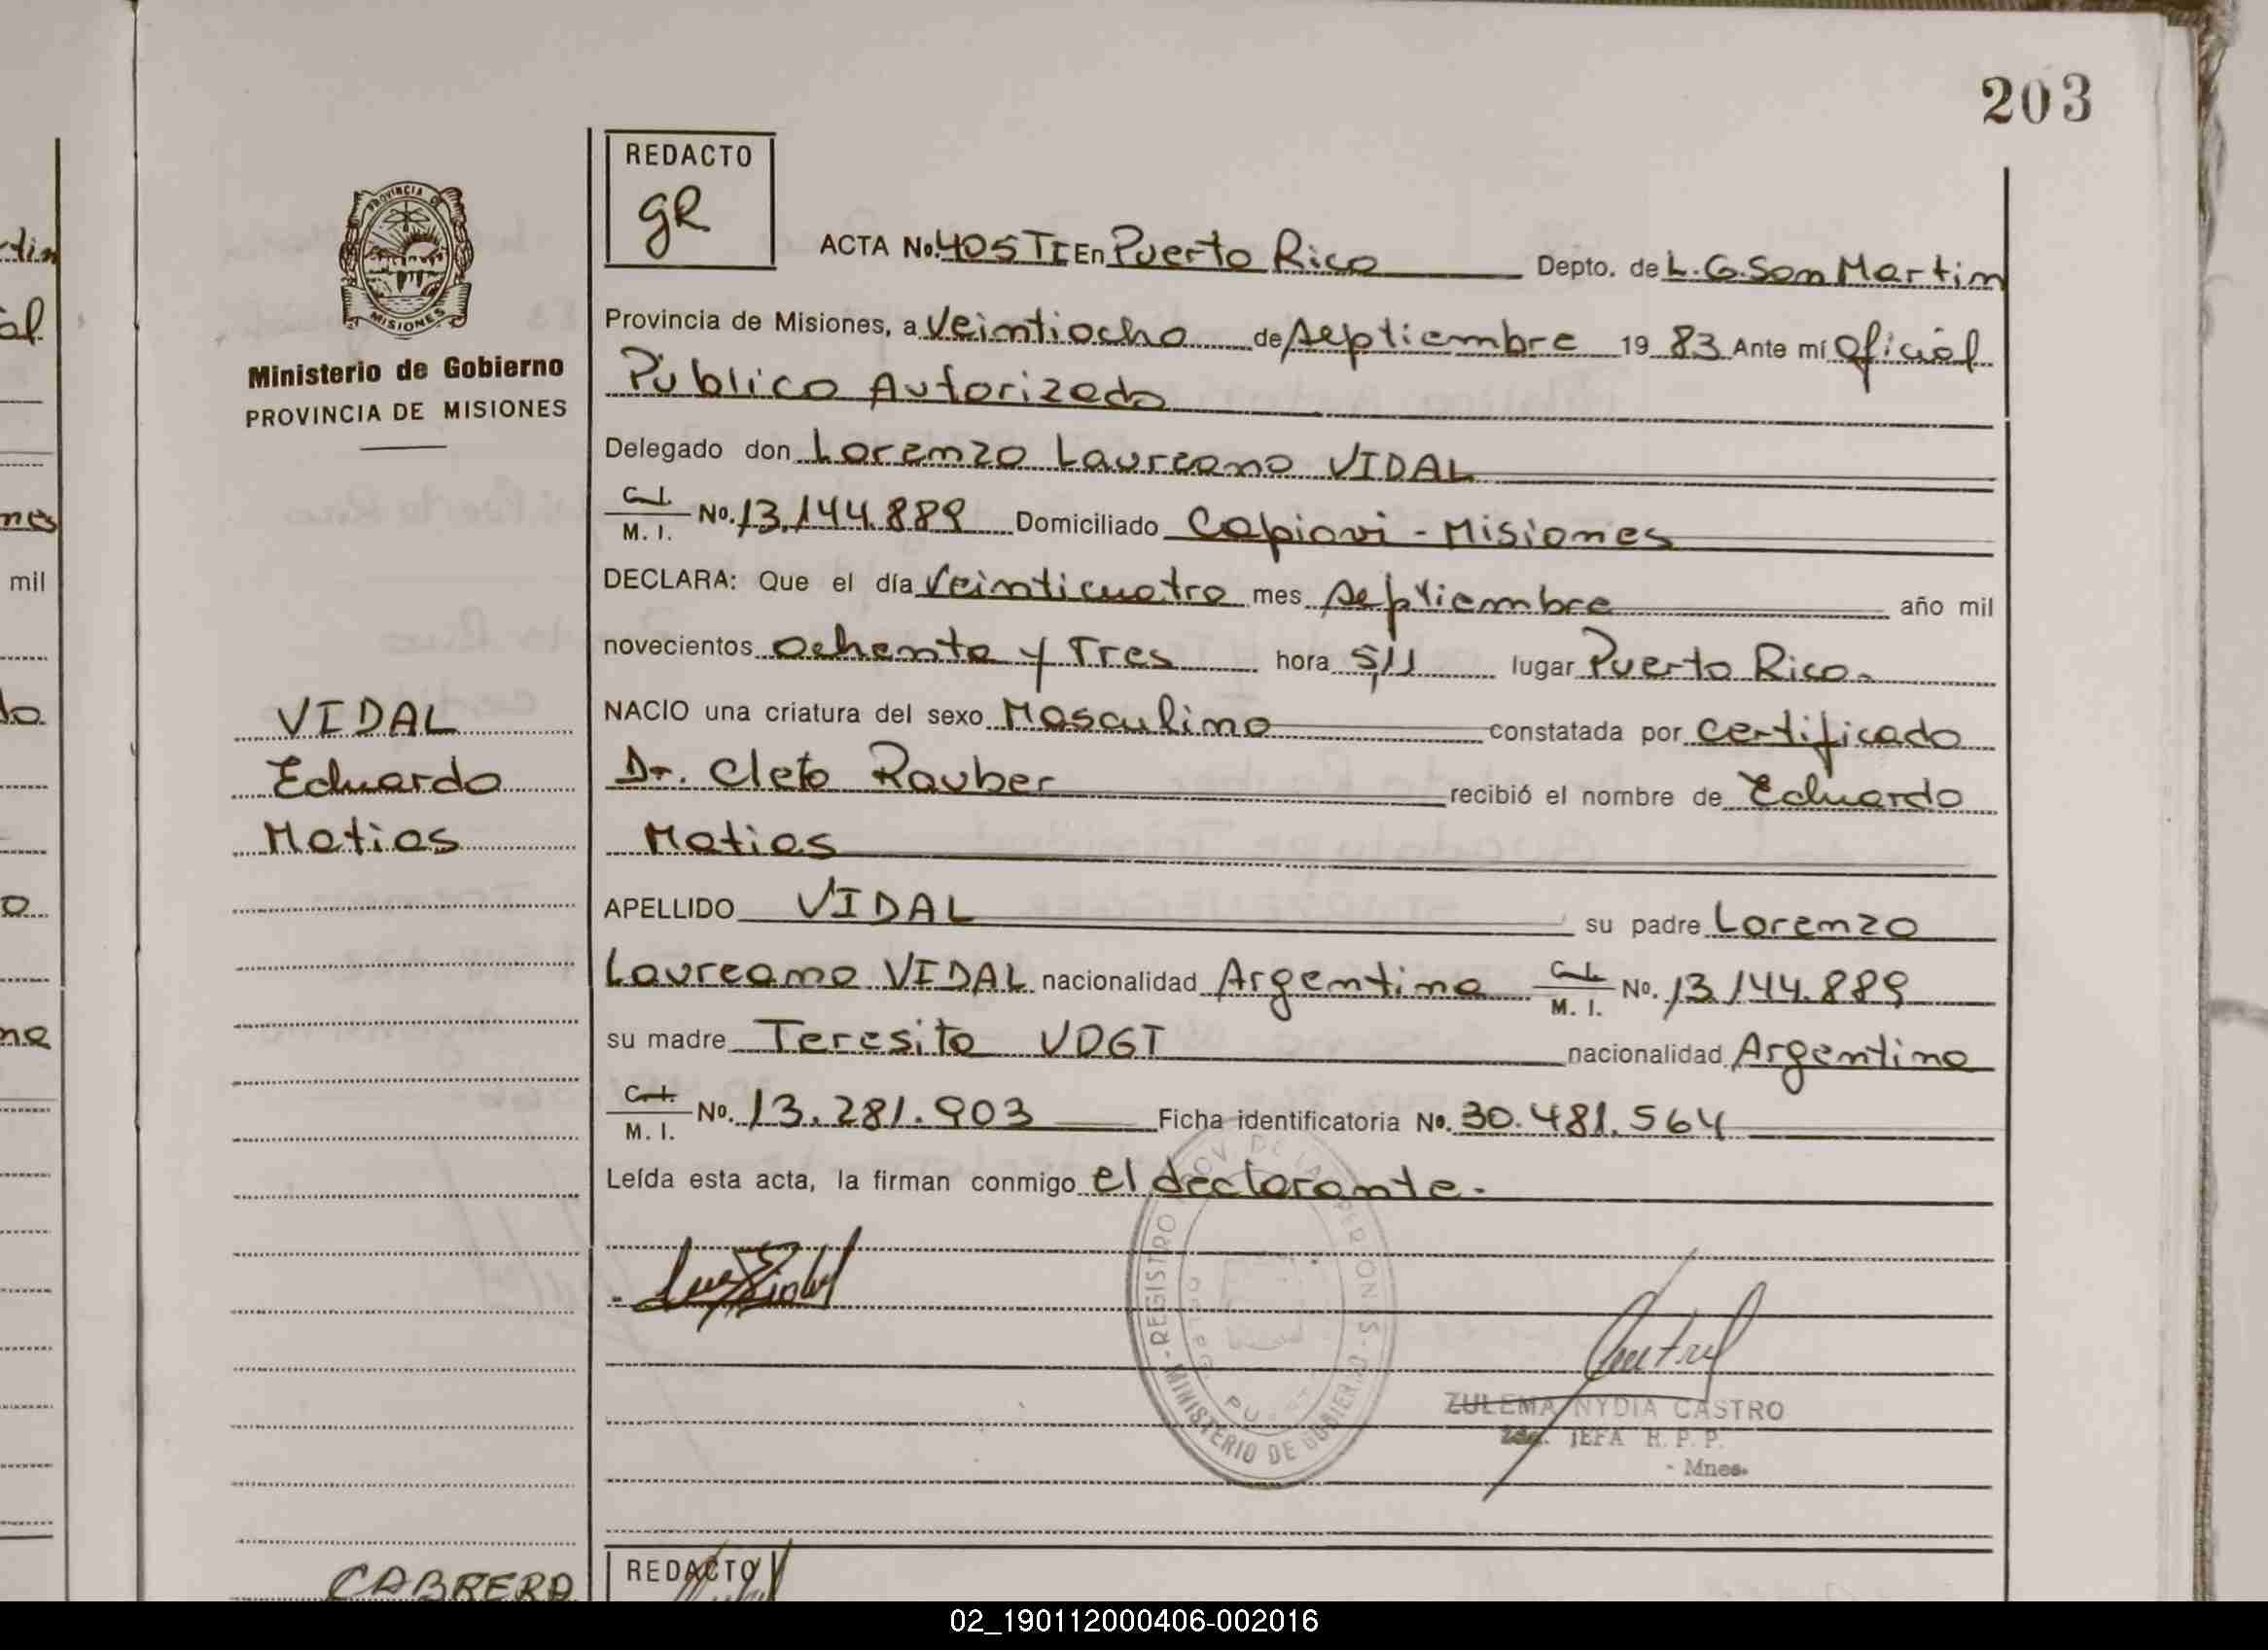 203
REDACTO
gR
ACTA No. 405 TI En Puerto Rico Depto. de L. G. San Martin
Provincia de Misiones, a Veintiocho de septiembre 19 83 Ante mí Oficial
Público Autorizado
Delegado don Lorenzo Laureano VIDAL
C. I.
M. I. No. 13.144.889 Domiciliado Capiovi - Misiones
DECLARA: Que el día Veinticuatro mes septiembre año mil
novecientos ochenta y Tres hora 5,11 lugar Puerto Rico.
NACIO una criatura del sexo Masculino constatada por certificado
Dr. Cleto Rauber recibió el nombre de Eduardo
Matias
APELLIDO VIDAL su padre Lorenzo
Laureano VIDAL nacionalidad Argentina C. I. M. I. No. 13.144.889
su madre Teresita VOGT nacionalidad Argentina
C. I.
M. I. No. 13.281.903 Ficha identificatoria No. 30.481.564
Leída esta acta, la firman conmigo el declarante.
PROVINCIA DE
MISIONES
Ministerio de Gobierno
PROVINCIA DE MISIONES
VIDAL
Eduardo
Matias
REGISTRO PROV. DE LAS PERSONAS
MINISTERIO DE GOBIERNO
ZULEMA NYDIA CASTRO
JEFA R. P. P.
- Mnes.
CABRERA
REDACTO
tin
al
nes
mil
do
o
na
02_190112000406-002016